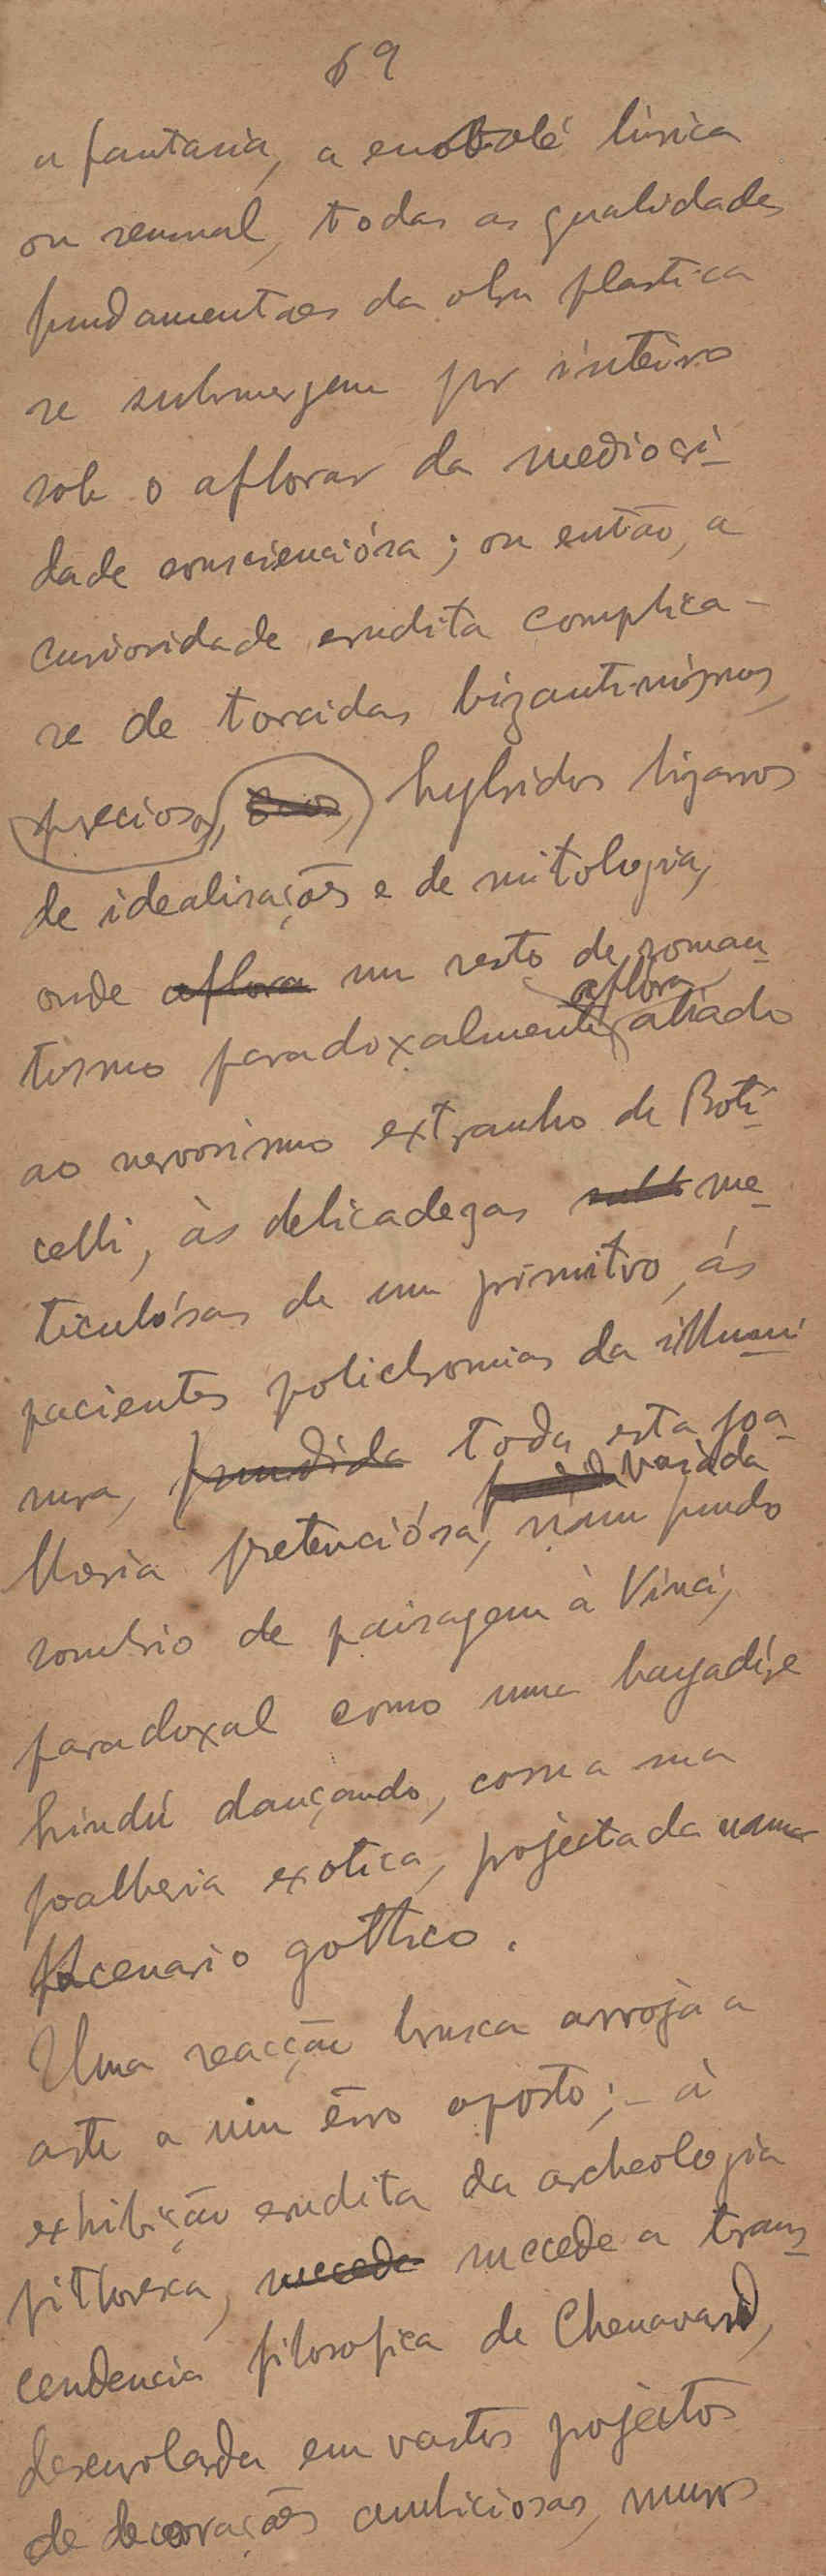 69
a fantasia, a emoção lirica
ou sensual, todas as qualidades
fundamentaes da obra plastica
se submergem por inteiro
sob o aflorar da mediocri-
dade conscienciósa; ou então, a
curiosidade erudita complica-
se de torcidos bizantinismos,
preciosos, hybridos bizarros
de idealisações e de mitologia,
onde aflora um resto de roman-
tismo paradoxalmente aflora aliado
ao nervosismo extranho de Boti-
celli, às delicadezas me-
ticulósas de um primitivo, ás
pacientes policromias da illumi-
nura, fundida toda esta joa-
lheria pretenciósa, vasada n'um fundo
sombrio de paisagem à Vinci,
paradoxal como uma bayadére
hindú dançando, com a sua
joalheria exotica, projectada n'um
scenario gothico.
Uma reacção brusca arroja a
arte a um êrro oposto; – à
exhibição erudita da archeologia
pittoresca, succede succede a trans-
cendencia filosofica de Chenavard,
desenrolada em vastos projectos
de decorações ambiciosas, muros